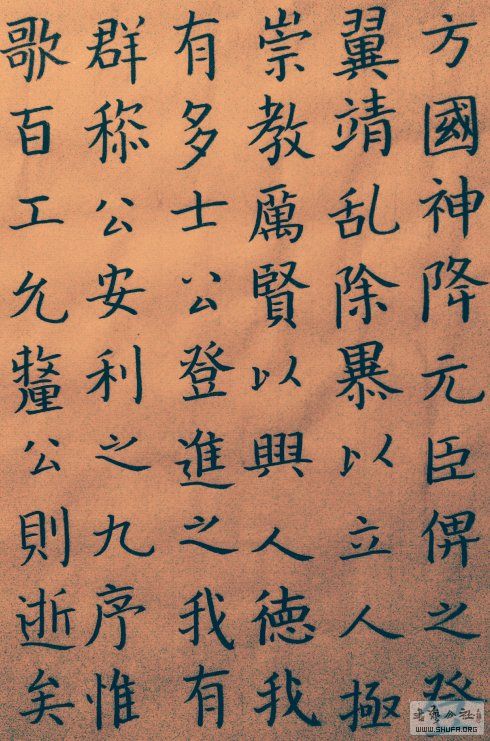 方國神降元臣俾之
翼靖乱除暴以立人極
崇教厲賢以興人德我
有多士公登進之我有
群称公安利之九序惟
歌百工允釐公則逝矣
WWW.SHUFA.ORG